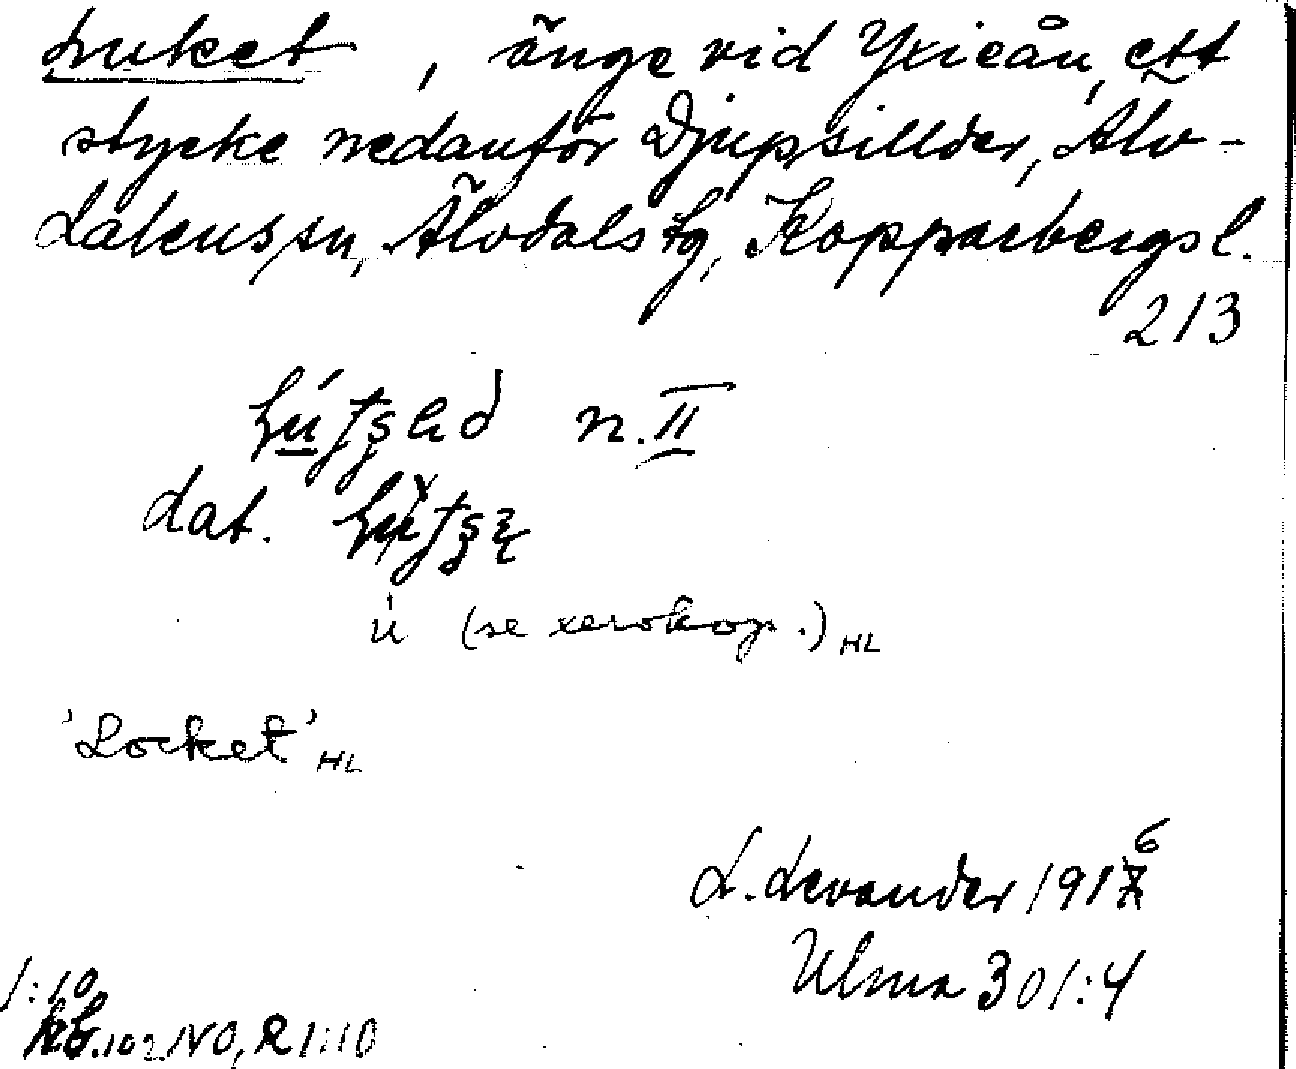 Luket, änge vid Yvieån, ett
stycke nedanför Djupsillder, Älv-
dalens sn, Älvdals tg, Kopparbergs l.
213
n. II
dat.
ú (se xerokop.) HL
'Locket' HL
L. Levander 1916
Ulma 301:4
1:10
NO, R 1:10